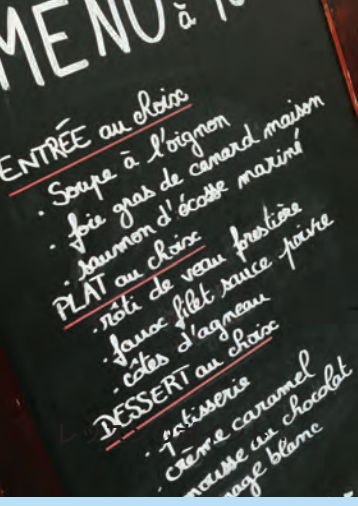 MENU à
ENTRÉE au choix
· Soupe à l'oignon
· foie gras de canard maison
· saumon d'écosse mariné
PLAT au choix
· rôti de veau forestière
· faux filet sauce poivre
· côtes d'agneau
DESSERT au choix
· patisserie
crème caramel
mousse au chocolat
blanc